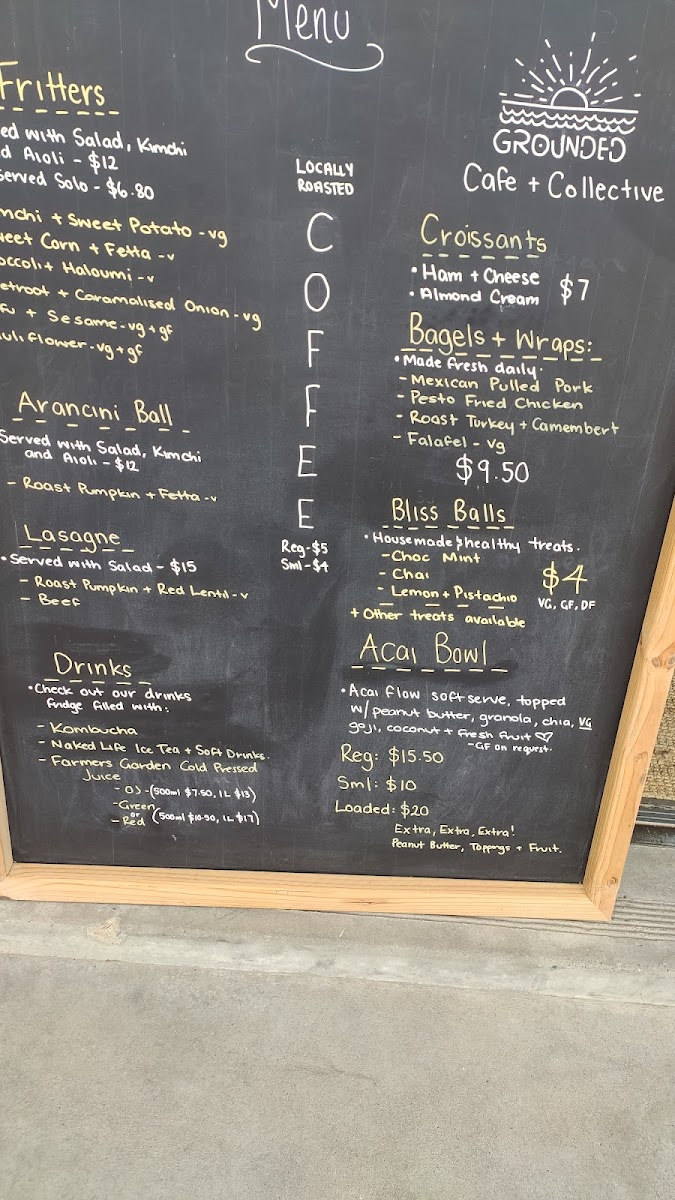 Menu
Fritters
ed with Salad, Kimchi
d Aioli - $12
Served Solo - $6.80
mchi + Sweet Potato - vg
weet Corn + Fetta - v
occoli + Haloumi - v
etroot + Caramalised Onion - vg
fu + Sesame - vg + gf
uliflower - vg + gf
Arancini Ball
Served with Salad, Kimchi
and Aioli - $12
- Roast Pumpkin + Fetta - v
Lasagne
• Served with Salad - $15
- Roast Pumpkin + Red Lentil - v
- Beef
Drinks
• Check out our drinks
fridge filled with:
- Kombucha
- Naked Life Ice Tea + Soft Drinks.
- Farmers Garden Cold Pressed
Juice
- OJ - (500ml $7.50, 1L $13)
- Green
or
- Red (500ml $10.50, 1L $17)
LOCALLY
ROASTED
C
O
F
F
E
E
Reg - $5
Sml - $4
GROUNDED
Cafe + Collective
Croissants
• Ham + Cheese
• Almond Cream $7
Bagels + Wraps:
• Made fresh daily.
- Mexican Pulled Pork
- Pesto Fried Chicken
- Roast Turkey + Camembert
- Falafel - vg
$9.50
Bliss Balls
• Housemade healthy treats.
- Choc Mint
- Chai
- Lemon + Pistachio
$4
VG, GF, DF
+ Other treats available
Acai Bowl
• Acai flow soft serve, topped
w/ peanut butter, granola, chia, VG
goji, coconut + fresh fruit ♡
- GF on request.
Reg: $15.50
Sml: $10
Loaded: $20
Extra, Extra, Extra!
Peanut Butter, Toppings + Fruit.